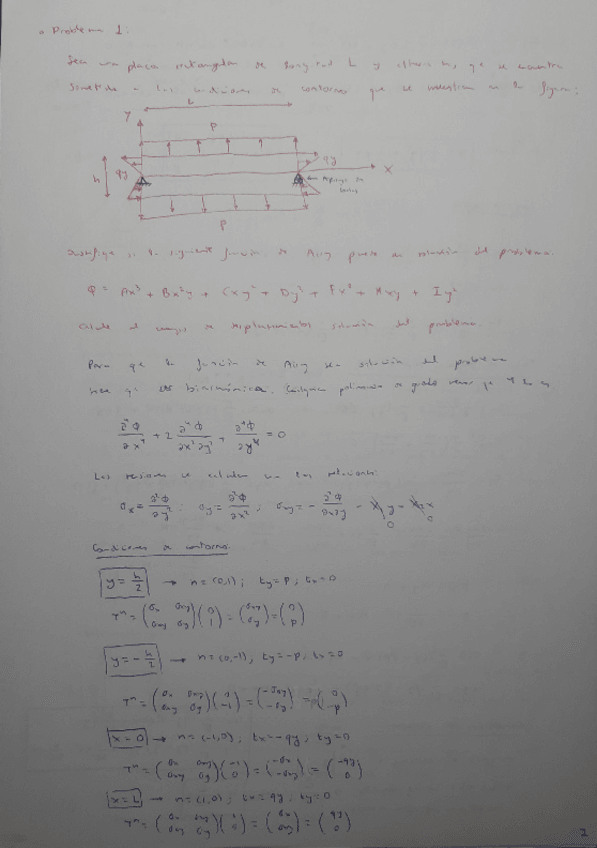 Problema 1:
Sea una placa rectangular de longitud L y altura h, que se encuentra
sometida a las condiciones de contorno que se muestran en la figura:
L
Y
P
qy
qy
X
h
Apoyos
P
Justifique si la siguiente función de Airy puede ser solución del problema.
Φ = Ax³ + Bx²y + Cxy² + Dy³ + Fx² + Hxy + Iy²
Calcule el campo de desplazamientos solución del problema.
Para que la función de Airy sea solución del problema
tiene que ser biarmónica. Cualquier polinomio de grado menor que 4 lo es
∂⁴Φ/∂x⁴ + 2 ∂⁴Φ/∂x²∂y² + ∂⁴Φ/∂y⁴ = 0
Las tensiones se calculan con las relaciones:
σx = ∂²Φ/∂y² ; σy = ∂²Φ/∂x² ; σxy = - ∂²Φ/∂x∂y
Condiciones de contorno:
y = h/2 → n = (0,1) ; ty = P ; tx = 0
Tⁿ = (σx σxy / σxy σy)(0 / 1) = (σxy / σy) = (0 / P)
y = -h/2 → n = (0,-1) ; ty = -P ; tx = 0
Tⁿ = (σx σxy / σxy σy)(0 / -1) = (-σxy / -σy) = (0 / -P)
x = 0 → n = (-1,0) ; tx = -qy ; ty = 0
Tⁿ = (σx σxy / σxy σy)(-1 / 0) = (-σx / -σxy) = (-qy / 0)
x = L → n = (1,0) ; tx = qy ; ty = 0
Tⁿ = (σx σxy / σxy σy)(1 / 0) = (σx / σxy) = (qy / 0)
2